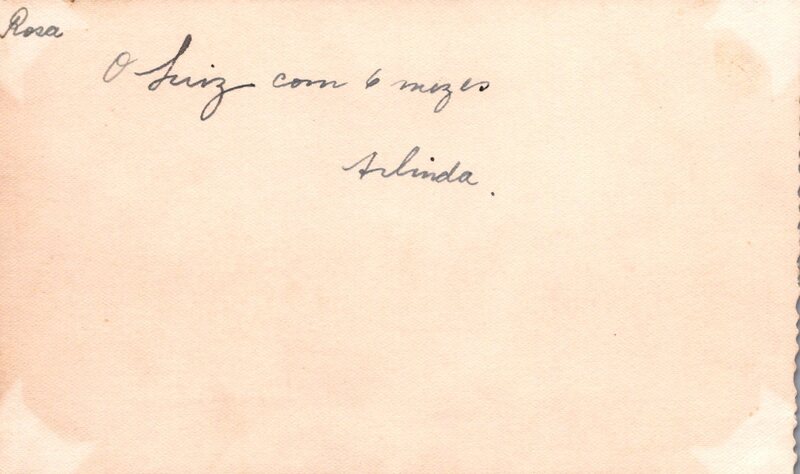 Rosa
O Luiz com 6 mezes
Arlinda.